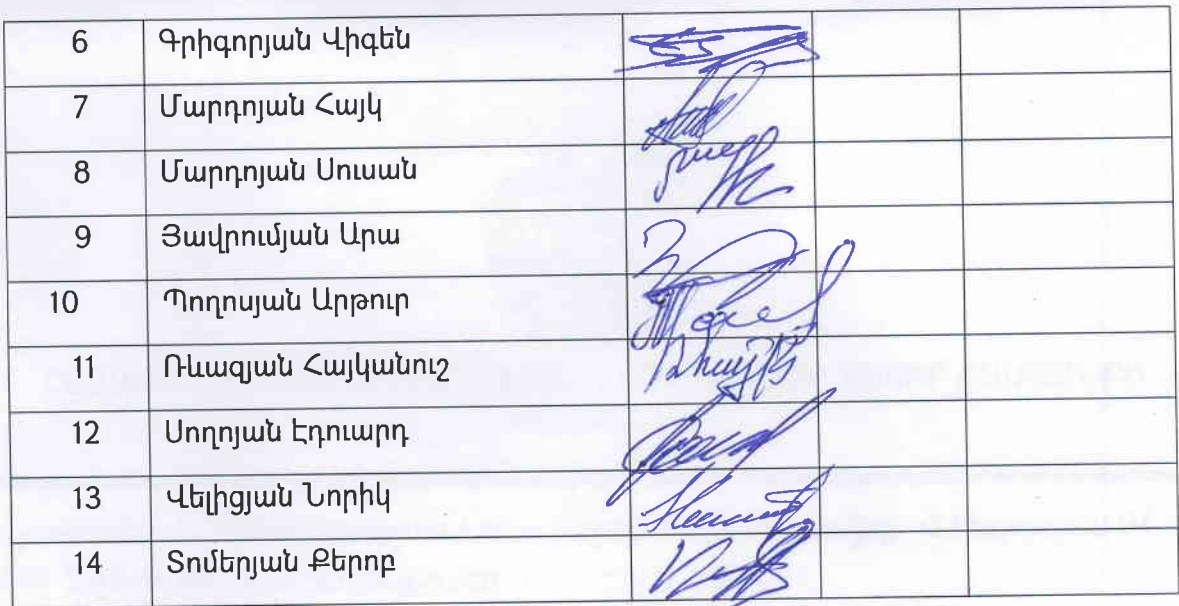 6 Գրիգորյան Վիգեն
7 Մարդոյան Հայկ
8 Մարդոյան Սուսան
9 Յավրումյան Արա
10 Պողոսյան Արթուր
11 Ռևազյան Հայկանուշ
12 Սողոյան Էդուարդ
13 Վելիցյան Նորիկ
14 Տոմերյան Քերոբ